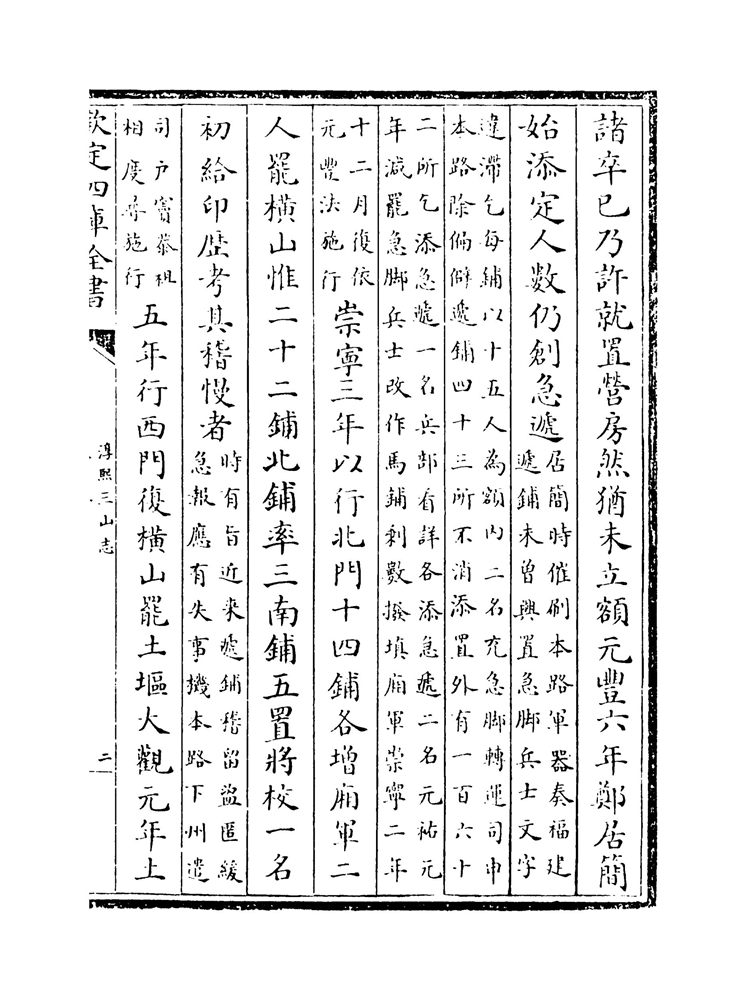 諸卒已乃許就置營房然猶未立額元豐六年鄭居簡
始添定人數仍創急遞
居簡時催刷本路軍器奏福建
遞鋪未曾興置急脚兵士文字
違滯乞每鋪以十五人為額内二名充急脚轉運司申
本路除偏僻遞鋪四十三所不消添置外有一百六十
二所乞添急遞一名兵部看詳各添急遞二名元祐元
年減罷急脚兵士改作馬鋪剩數撥填廂軍崇寧二年
十二月復依
元豐法施行
崇寧三年以行北門十四鋪各增廂軍二
人罷橫山惟二十二鋪北鋪率三南鋪五置將校一名
初給印歴考其稽慢者
時有旨近来遞鋪稽留盜匿緩
急報應有失事機本路下州遣
司户竇祖
相度尋施行
五年行西門復橫山罷土塸大觀元年土
欽定四庫全書
淳熙三山志
二